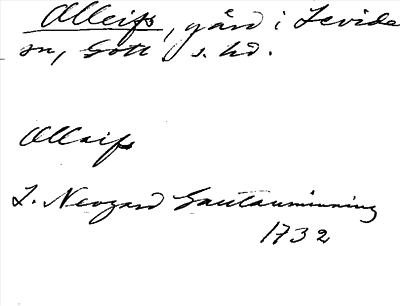 Alleifs, gård i Levide
sn, Gotl s. hd.
Allaifs
L. Neogard Gautauminning
1732